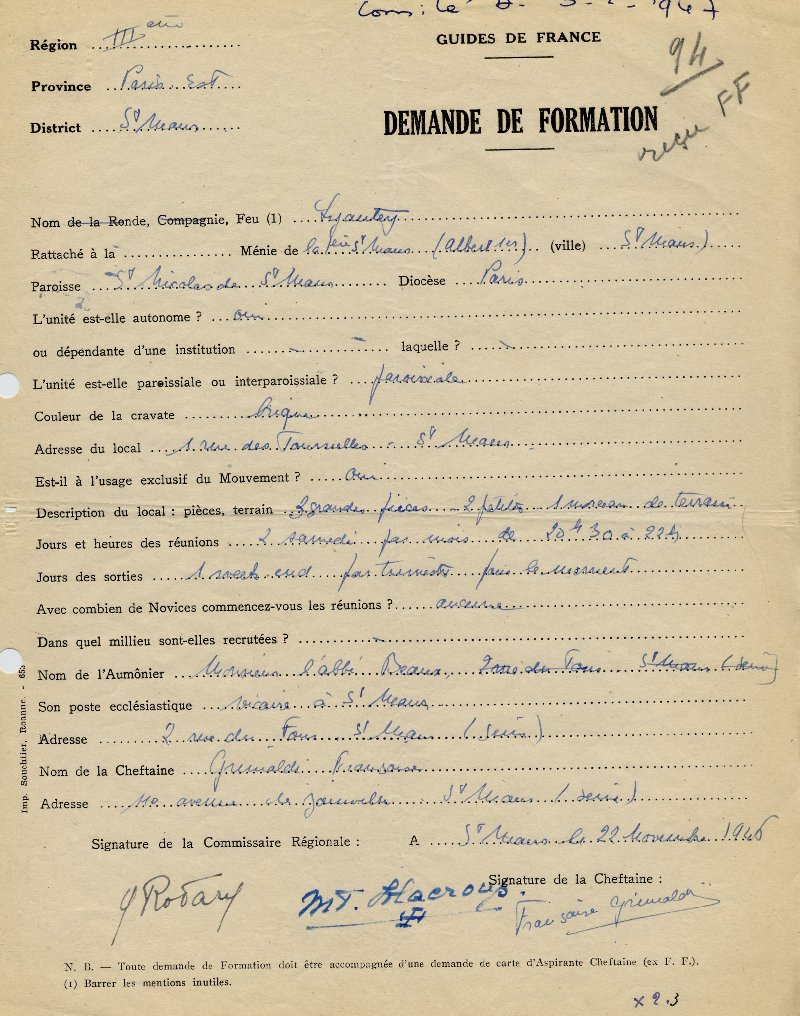 Comité 1947
Région IIIème
GUIDES DE FRANCE
94
Province Paris Est
District St Maur
DEMANDE DE FORMATION
reçu FF
Nom de la Ronde, Compagnie, Feu (1) Lyautey
Rattaché à la Ménie de la 1ère St Maur (Albert 1er) (ville) St Maur)
Paroisse St Nicolas de St Maur Diocèse Paris
L'unité est-elle autonome ? oui
ou dépendante d'une institution - - laquelle ? -
L'unité est-elle paroissiale ou interparoissiale ? paroissiale
Couleur de la cravate brique
Adresse du local 1 rue des Tournelles - St Maur
Est-il à l'usage exclusif du Mouvement ? oui
Description du local : pièces, terrain 3 grandes pièces - 2 petites 1 morceau de terrain
Jours et heures des réunions 2 samedi par mois de 20h30 à 22h
Jours des sorties 1 week end par trimestre pour le moment
Avec combien de Novices commencez-vous les réunions ? aucune
Dans quel millieu sont-elles recrutées ? -
Nom de l'Aumônier Monsieur l'abbé Beaux, 2 rue du Four St Maur (Seine)
Son poste ecclésiastique vicaire à St Maur
Adresse 2 rue du Four St Maur (Seine)
Nom de la Cheftaine Grimaldi Françoise
Adresse avenue de Joinville St Maur (Seine)
Signature de la Commissaire Régionale : A St Maur le 22 Novembre 1946
Signature de la Cheftaine :
Y Rodary MT. Françoise Grimaldi
N. B. — Toute demande de Formation doit être accompagnée d'une demande de carte d'Aspirante Cheftaine (ex F. F.).
(1) Barrer les mentions inutiles.
x 2.3
Imp. Souchier, Roanne. - 655